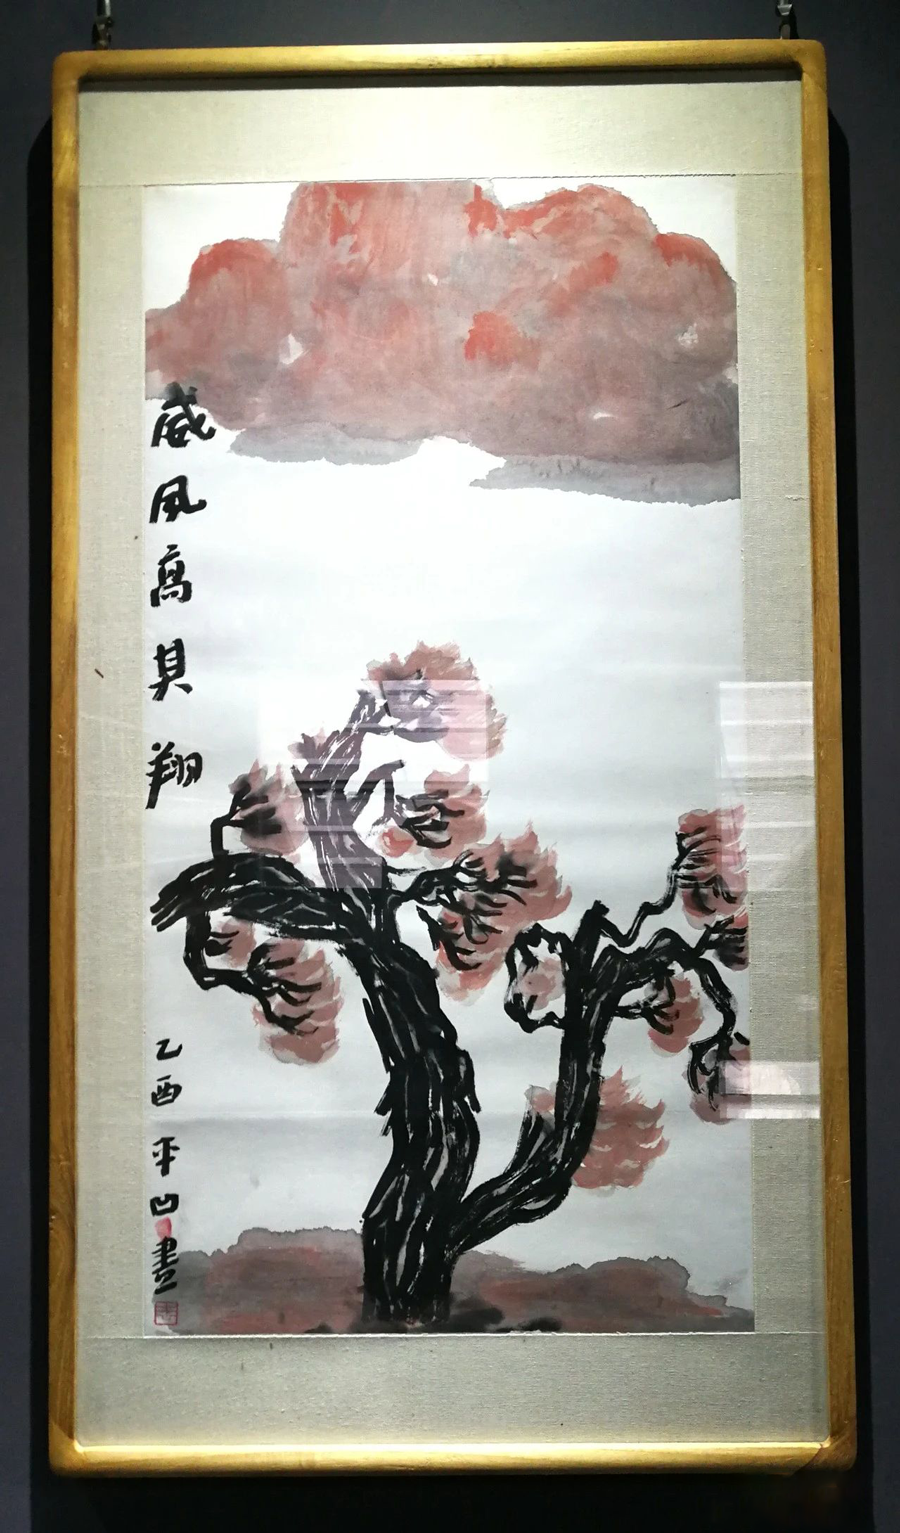 威风高其翔
乙酉平凹畫